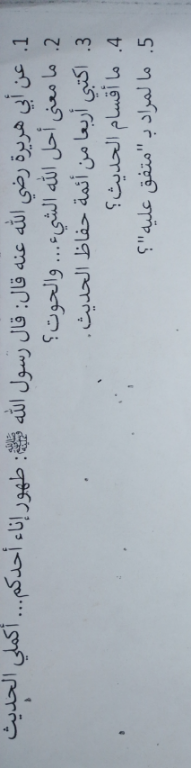 1. عن أبي هريرة رضي الله عنه قال: قال رسول الله ﷺ: طهور إناء أحدكم... أكملي الحديث
2. ما معنى أحل الله الشيء... والحوت؟
3. اكتبي أربعا من أئمة حفاظ الحديث.
4. ما أقسام الحديث؟
5. ما لمراد بـ "متفق عليه"؟